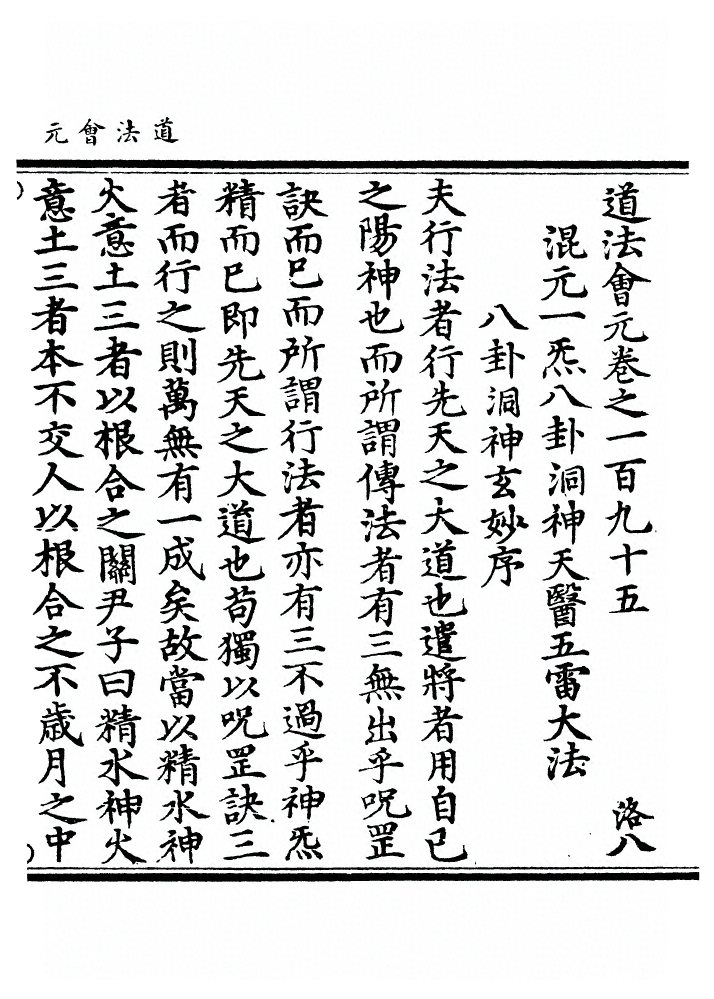 道法會元
道法會元卷之一百九十五 洛八
混元一炁八卦洞神天醫五雷大法
八卦洞神玄妙序
夫行法者行先天之大道也遣將者用自已
之陽神也而所謂傳法者有三無出乎呪罡
訣而巳而所謂行法者亦有三不過乎神炁
精而巳即先天之大道也苟獨以呪罡訣三
者而行之則萬無有一成矣故當以精水神
火意土三者以根合之關尹子曰精水神火
意土三者本不交人以根合之不歲月之中